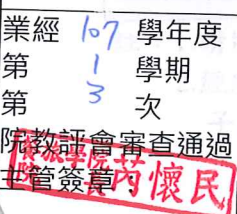 業經 107 學年度
第 1 學期
第 3 次
院教評會審查通過
主管簽章
學院 芮懷民